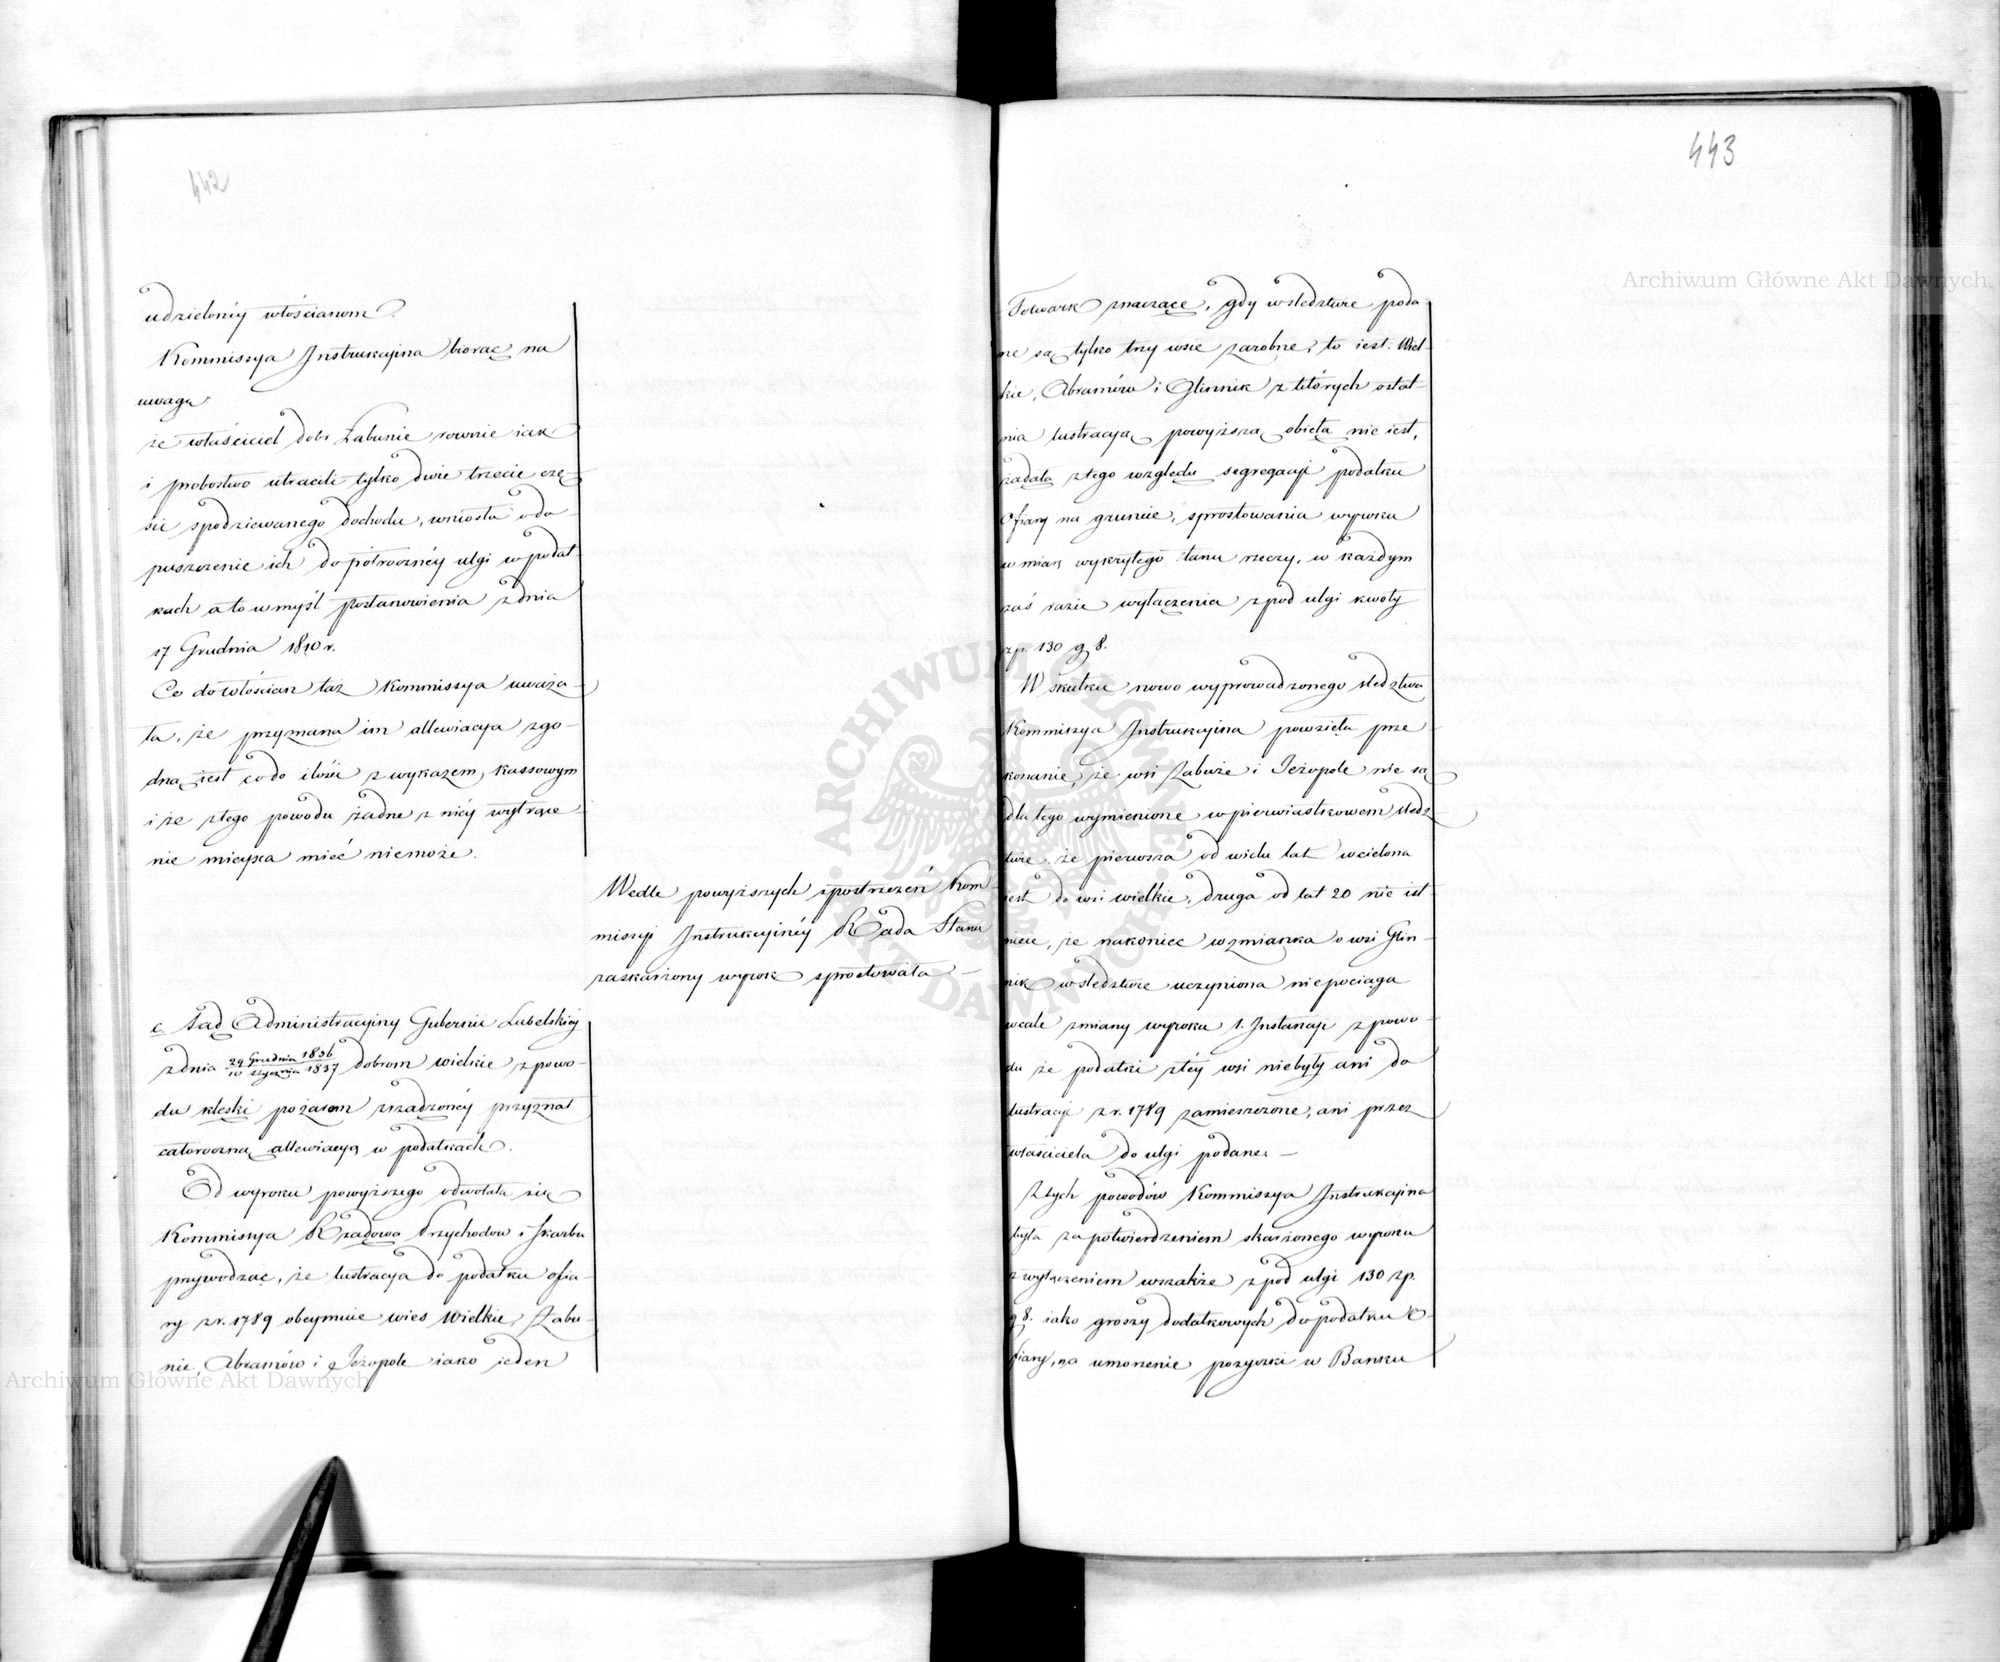 442
udzielonéy włościanom.
Kommissya Instrukcyina biorąc na
uwagę
że właściciel dobr Łabunie rownie iak
i probostwo utracili tylko dwie trzecie czę-
ści spodziewanego dochodu, wniosła o do-
puszczenie ich do półrocznéy ulgi w podat-
kach a to w myśl postanowienia z dnia
17 Grudnia 1810 r.
Co do włościan taż Kommissya uważa-
ła, że przyznana im allewiacya zgo-
dną iest co do ilości z wykazem kassowym
i że z tego powodu żadne z niéy wytrące-
nie mieysca mieć niemoże.
Wedle powyższych spostrzeżeń Kom-
missyi Instrukcyinéy Rada Stanu
zaskarżony wyrok sprostowała —
c. Sąd Administracyiny Gubernii Lubelskiéy
z dnia 29 Grudnia 1836 / 10 Stycznia 1837 dobrom Wielkie z powo-
du klęski pożarem zrządzonéy przyznał
całoroczną allewiacyą w podatkach.
Od wyroku powyższego odwołała się
Kommissya Rządowa Przychodow i Skarbu
przywodząc, że lustracya do podatku ofia-
ry z r. 1789 obeymuie wieś Wielkie, Zabu-
nie, Abramów i Jeżopole iako ieden
443
Folwark znaczące, gdy w śledztwie poda-
ne są tylko trzy wsie zarobne, to iest: Wiel-
kie, Abramów i Glinnik z których ostat-
nia lustracyą powyższą obięta nie iest,
żądała z tego względu segregacyi podatku
Ofiary na gruncie, sprostowania wyroku
w miarę wykrytego stanu rzeczy, w każdym
zaś razie wyłączenia z pod ulgi kwoty
zp. 130 g 8.
W skutku nowo wyprowadzonego śledztwa
Kommissya Instrukcyina powzięła prze-
konanie, że wsi Zabuże i Jeżopole nie są
dla tego wymienione w pierwiastkowem śledz-
twie, że pierwsza od wielu lat wcielona
iest do wsi Wielkie, druga od lat 20 nie ist-
nieie, że nakoniec wzmianka o wsi Glin-
nik w śledztwie uczyniona niepociąga
wcale zmiany wyroku 1. Instancyi z powo-
du że podatki z téy wsi niebyły ani do
lustracyi z r. 1789 zamieszczone, ani przez
właściciela do ulgi podane. —
Z tych powodów Kommissya Instrukcyina
była za potwierdzeniem skarżonego wyroku
z wyłączeniem wszakże z pod ulgi 130 zp.
g 8. iako groszy dodatkowych do podatku O-
fiary, na umorzenie pożyczki w Banku
Archiwum Główne Akt Dawnych
Archiwum Główne Akt Dawnych
ARCHIWUM GŁÓWNE AKT DAWNYCH